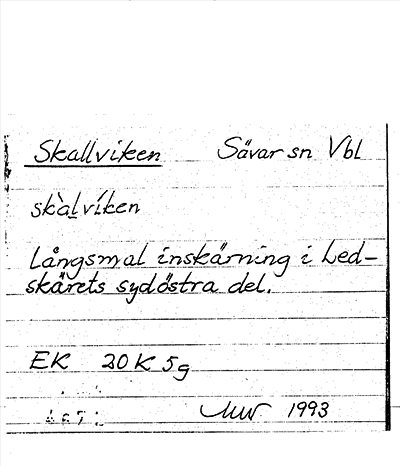 Skallviken Sävar sn Vbl
skàl̲víken
Långsmal inskärning i Led-
skärets sydöstra del.
EK 20K 5g
1993